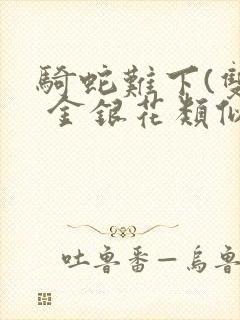 騎蛇難下(雙
金銀花類似
吐魯番—烏魯